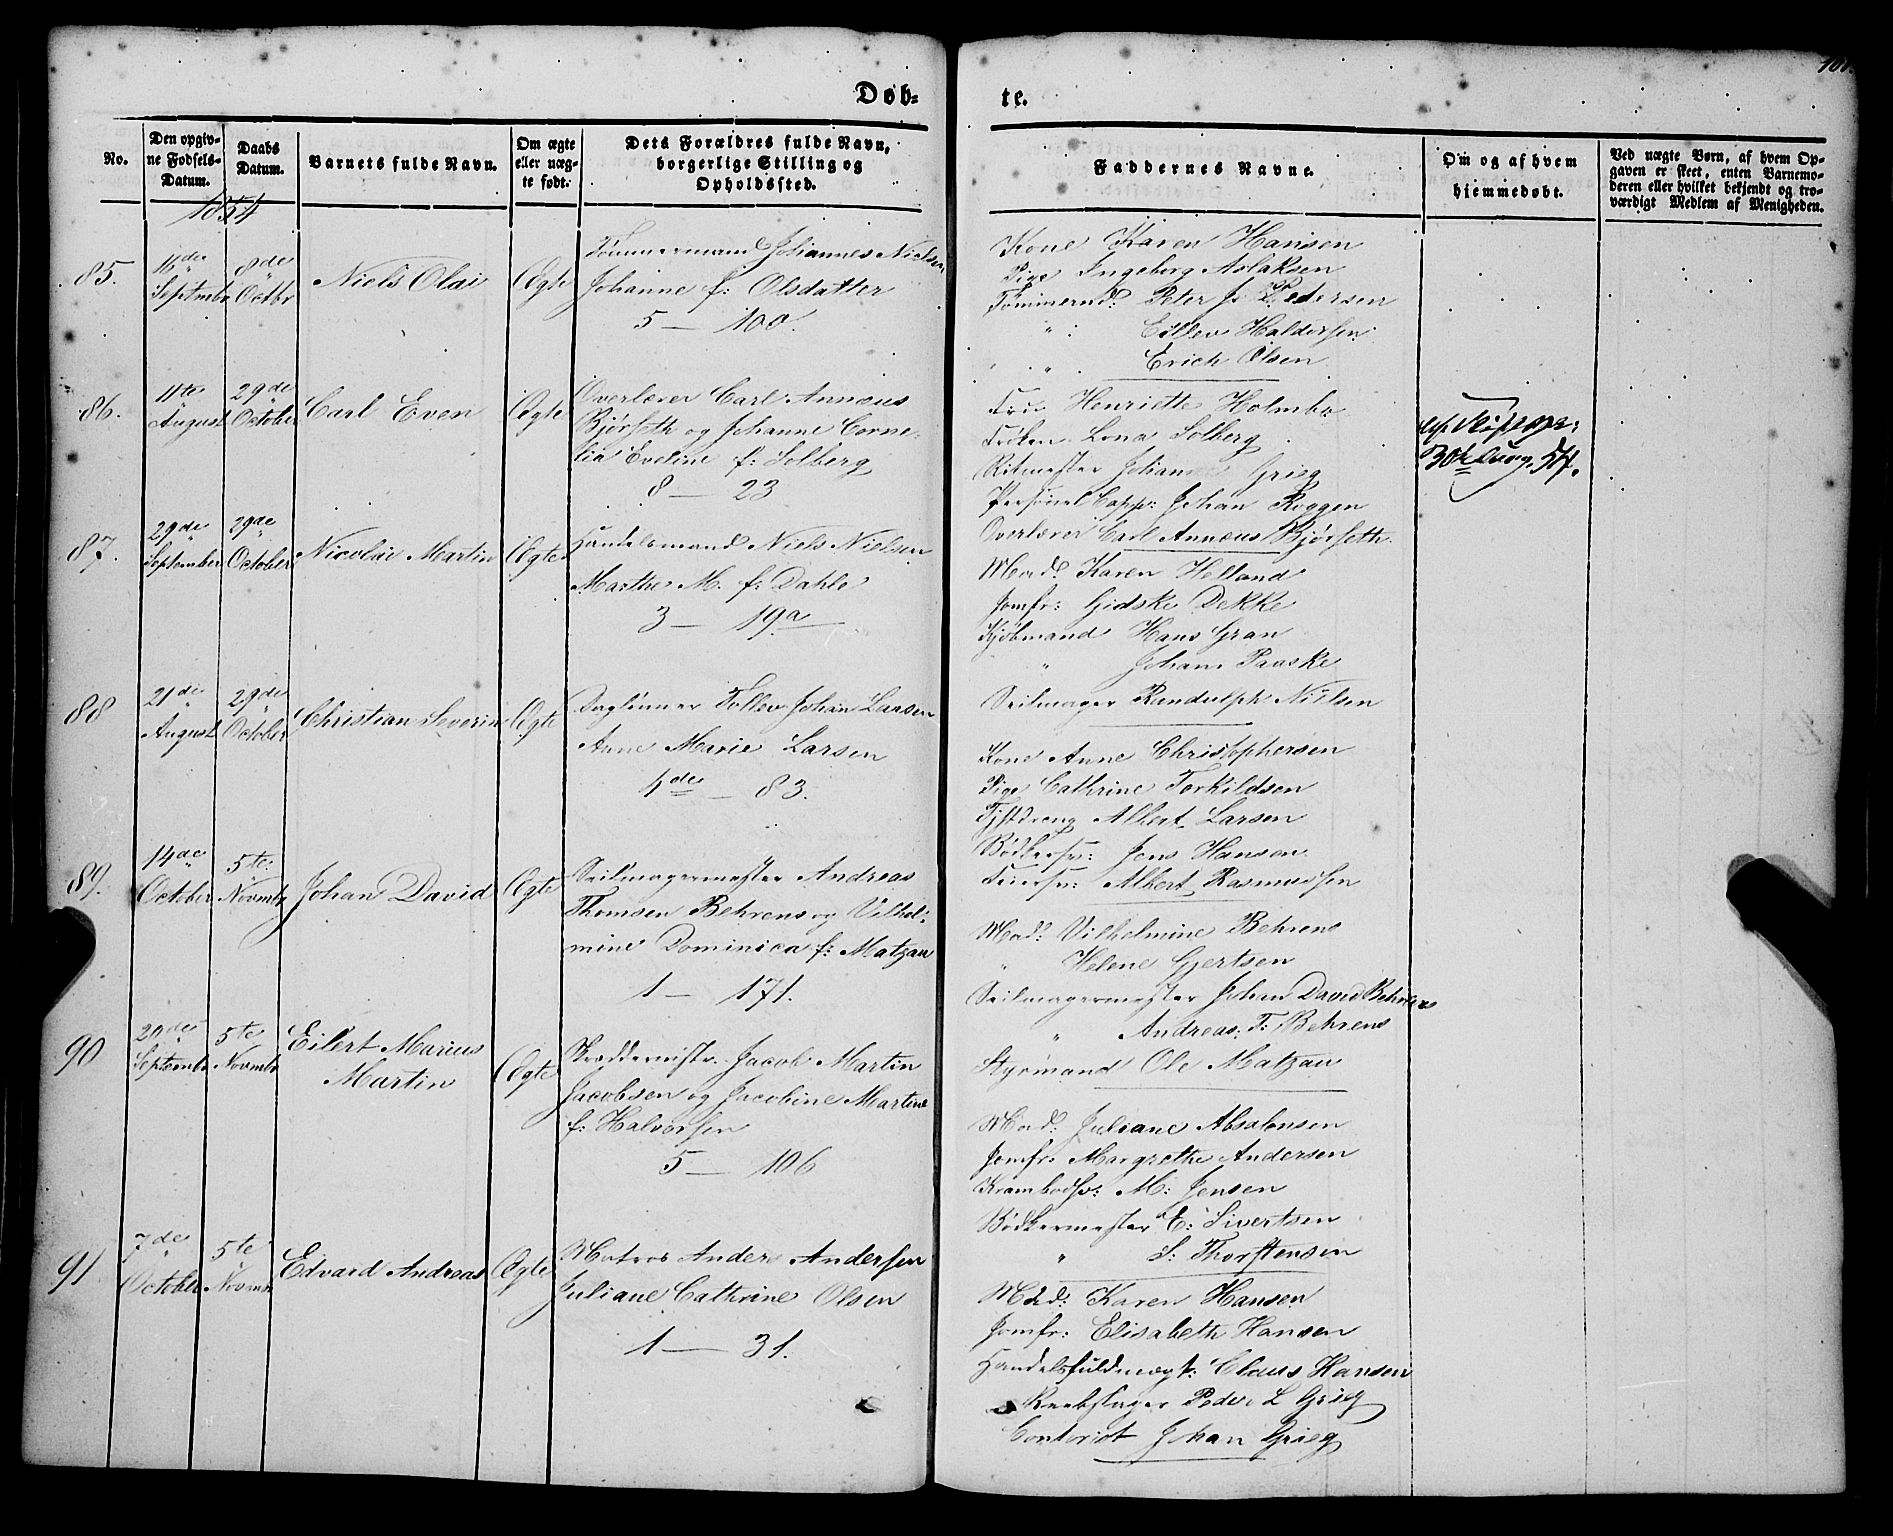 Døb-
te.
No.
Den opgiv-
ne Fødsels-
Datum.
Daabs
Datum.
Barnets fulde Navn.
Om ægte
eller uæg-
te født.
Dets Forældres fulde Navn,
borgerlige Stilling og
Opholdssted.
Faddernes Navne.
Om og af hvem
hjemmedøbt.
Ved uægte Børn, af hvem Op-
gaven er skeet, enten Barnemo-
deren eller hvilket bekjendt og tro-
værdigt Medlem af Menigheden.
1854
85.
16de
Septembr
8de
Octbr
Niels Olai
Ægte
Tømmermand Johannes Nielsen
Johanne f: Olsdatter
5 — 100.
Kone Karen Hansen
Pige Ingeborg Aslaksen
Tømmermd: Peter J: Pedersen
" : Eillev Haldorsen
" " Erich Olsen
86.
11te
August
29de
October
Carl Even
Ægte
Overlærer Carl Annæus
Bjørseth og Johanne Corne-
lia Eveline f: Solberg
8 — 23
Fru Henriette Holmbo
Frøken Lona Solberg
Ritmester Johan Grieg
Personel Capp: Johan Roggen
Overlærer Carl Annæus Bjørseth.
30te Aug. 54.
87.
29de
September
29de
October
Nicolai Martin
Ægte
Handelsmand Niels Nielsen
Marthe M. f: Dahle
3 — 19a
Mad: Karen Holland
Jomfr: Gidske Dekke
Kjøbmand Hans Gran
" Johan Paaske
Seilmager Randulph Nielsen
88
21de
August
29de
October
Christian Severin
Ægte
Dagleiner Tollev Johan Larsen
Anne Marie Larsen
4de — 83.
Kone Anne Christophersen
Pige Cathrine Torkildsen
Tjstdreng Albert Larsen
Bødkersv: Jens Hansen
Feiersv: Albert Rasmussen
89.
14de
October
5te
Novmbr
Johan David
Ægte
Seilmagermester Andreas
Thomsen Behrens og Vilhel-
mine Dominica f: Matzau
1 — 171.
Mad: Vilhelmine Behrens
" Helene Gjertsen
Seilmagermester Johan David Behrens
" Andreas: T: Behrens
Styrmand Ole Matzau
90
20de
Septembr
5te
Novmbr
Eilert Marius
Martin
Ægte
Skræddermstr. Jacob Martin
Jacobsen og Jacobine Martine
f: Halvorsen
5 — 106
Mad: Juliane Absalonsen
Jomfr: Margrethe Andersen
Krambodsv: M: Jensen
Bødkermester E: Sivertsen
" S: Thorstensen
91
7de
October
5te
Novmbr
Edvard Andreas
Ægte
Matros Anders Andersen
Juliane Cathrine Olsen
1 — 31.
Mad: Karen Hansen
Jomfr: Elisabeth Hansen
Handelsfuldmægt: Claus Hansen
Reebslager Peder L Grieg
Contorist Johan Grieg